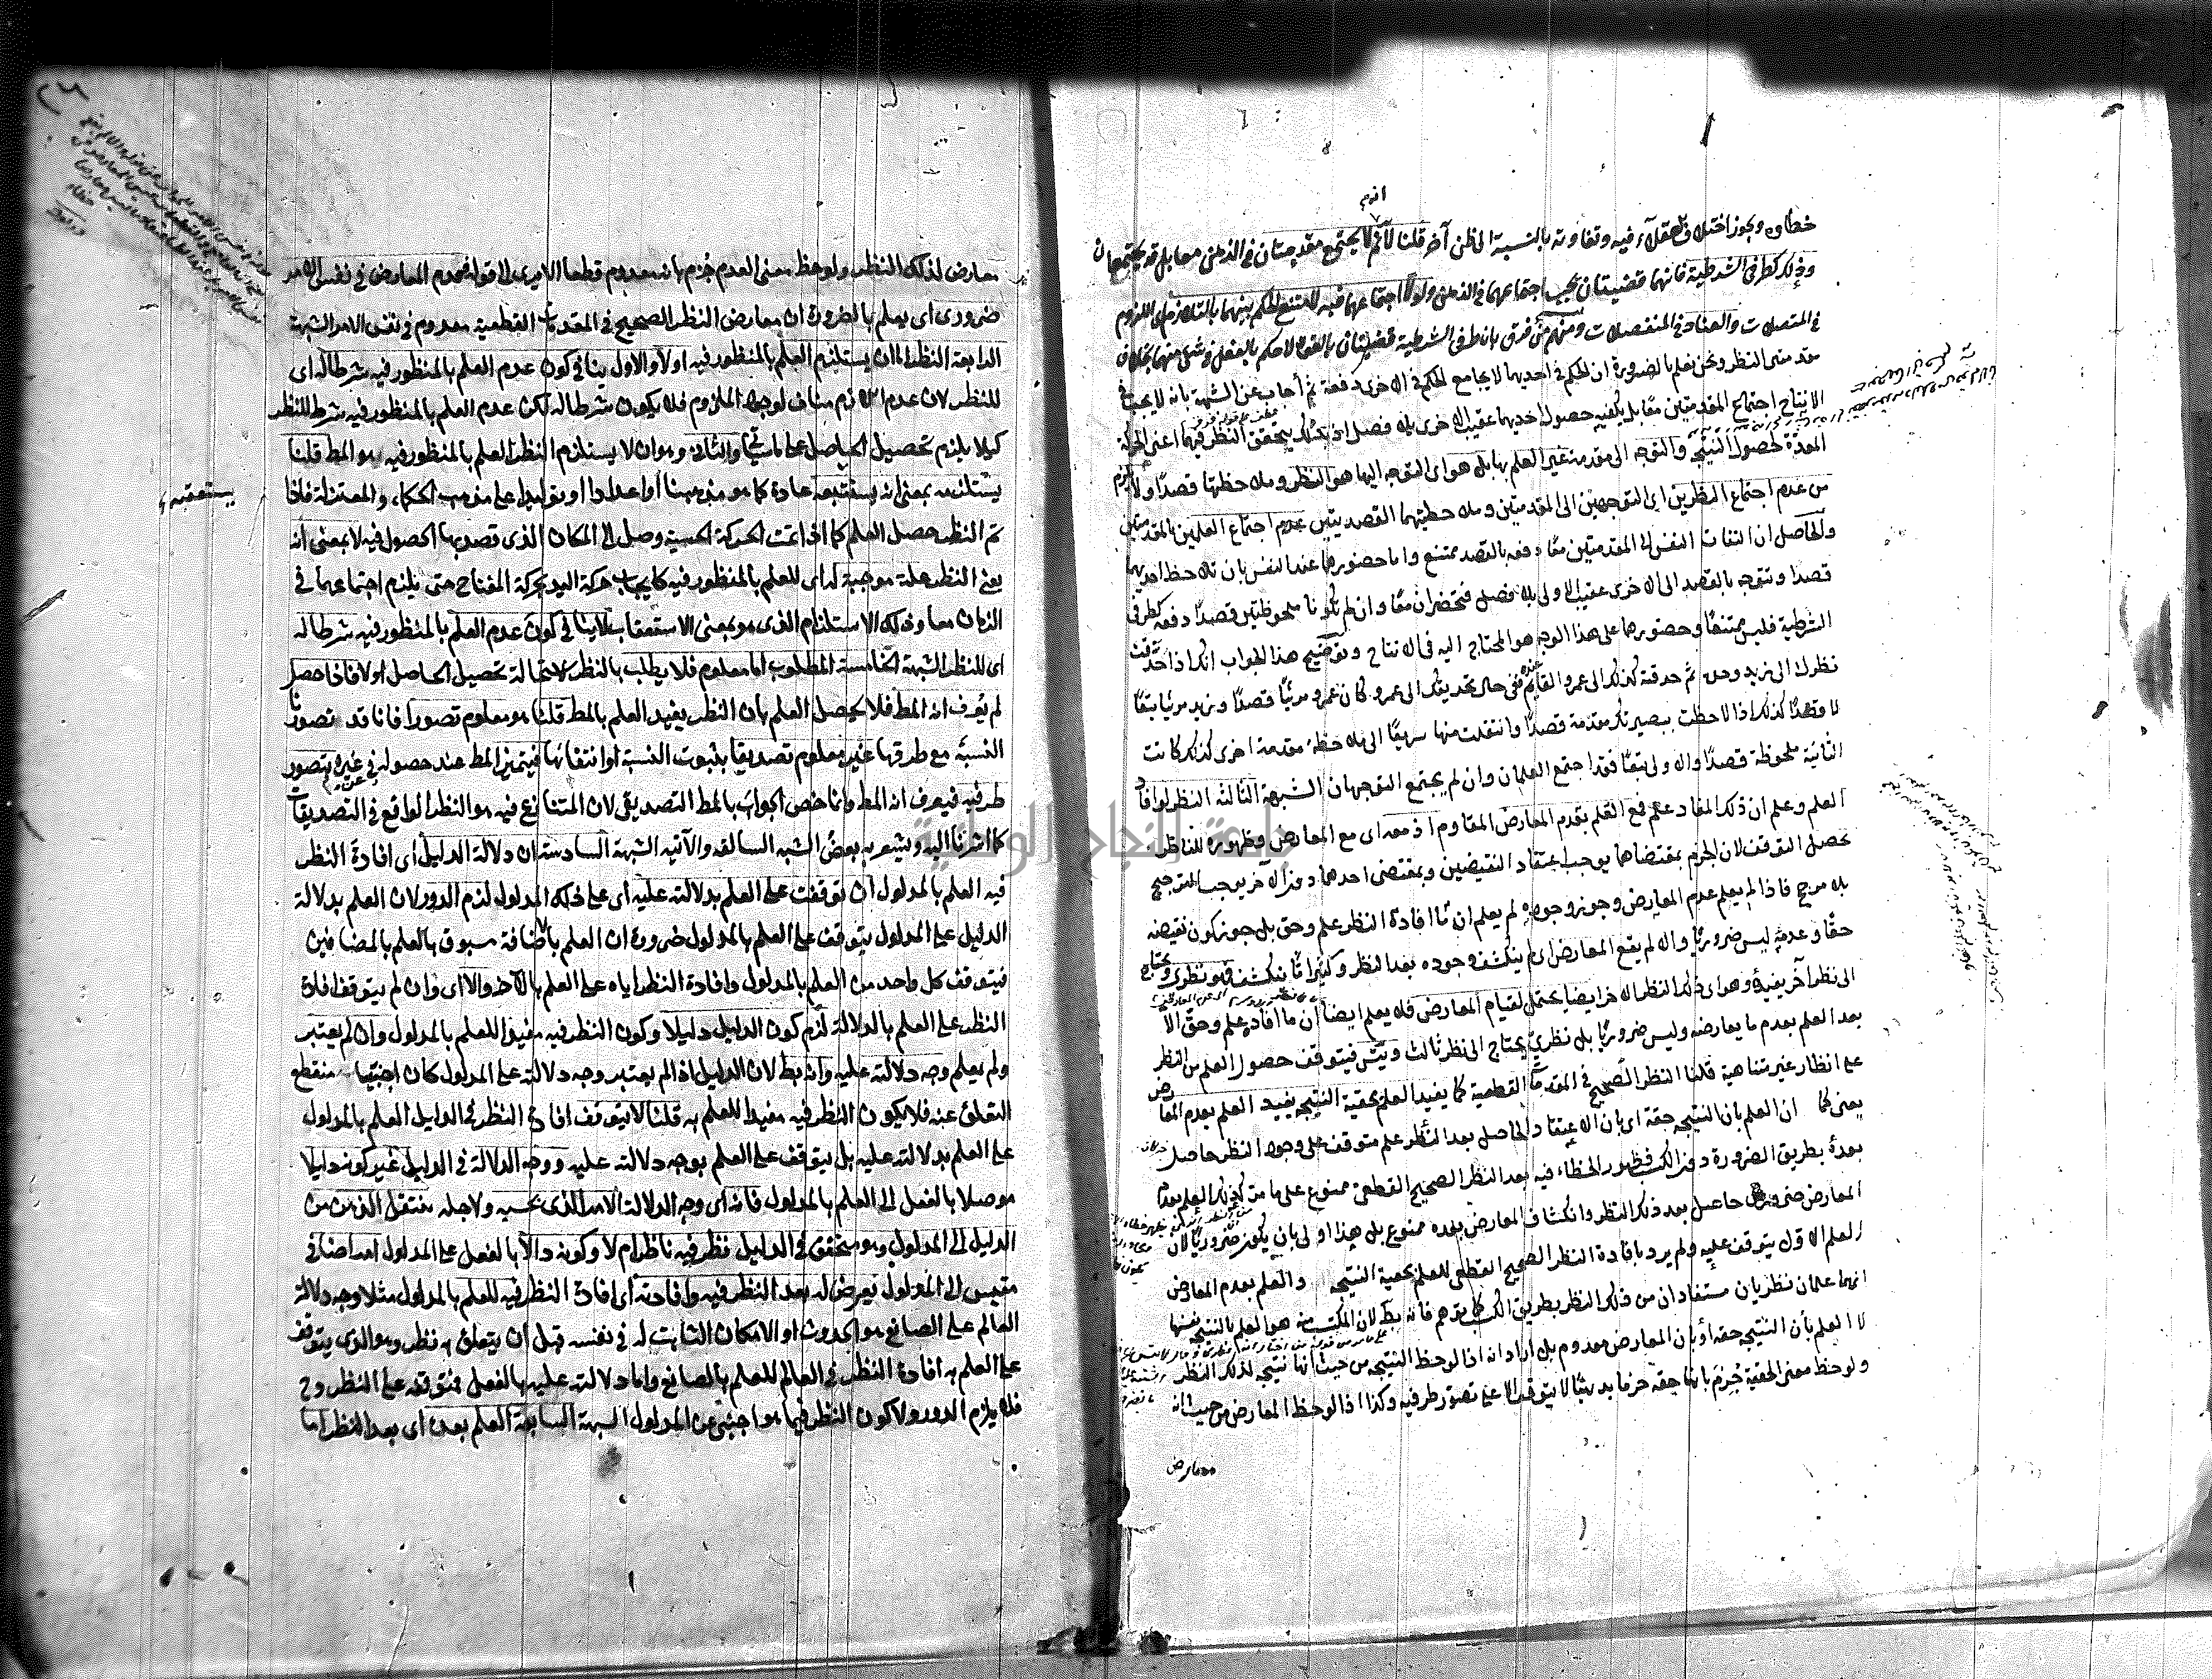 خطأوه ويجوز اختلاف العقلاء فيه وتفاوته بالنسبة الى ظن آخر قلنا لا نم انه لا يجتمع مقدمتان في الذهن معا بل قد يجتمعان
وذلك كطرفى الشرطية فانهما قضيتان يجب اجتماعهما في الذهن ولولا اجتماعهما فيه لامتنع الحكم بينهما بالتلازم اى اللزوم
في المتصلات والعناد في المنفصلات ومنهم من فرق بان طرفى الشرطية قضيتان بالقوة لا حكم بالفعل في شئ منهما بخلاف
مقدمتى النظر ونحن نعلم بالضرورة ان الحكم في احديهما لا يجامع الحكم في الاخرى دفعة ثم أجاب عن الشبهة بانه لا يجب في
الانتاج اجتماع المقدمتين معا بل يكفيه حصول احديهما عقيب الاخرى بلا فصل اذ بذلك يتحقق النظر فيهما اعنى الحركة
المعدّة لحصول النتيجة والتوجه الى مقدمة غير العلم بها بل هو اى التوجه اليها هو النظر وملاحظتها قصدًا ولا يلزم
من عدم اجتماع النظرين اى التوجهين الى المقدمتين وملاحظتيهما القصديتين عدم اجتماع العلمين بالمقدمتين
والحاصل ان التفات النفس الى المقدمتين معًا دفعة بالقصد ممتنع واما حضورهما عند النفس بان تلاحظ احديهما
قصدًا وتتوجه بالقصد الى الاخرى عقيب الاولى بلا فصل فتحضران معًا وان لم تكونا ملحوظتين قصدًا دفعة كطرفى
الشرطية فليس ممتنعًا وحضورهما على هذا الوجه هو المحتاج اليه في الانتاج وتوضيح هذا الجواب انك اذا حدّقت
نظرك الى زيد وحده ثم حدقته كذلك الى عمرو القائم عنده ففى حال تحديقك الى عمرو كان عمرو مرئيًا قصدًا وزيد مرئيا تبعًا
لا قصدًا كذلك اذا لاحظت ببصيرتك مقدمة قصدًا وانتقلت منها سريعًا الى ملاحظة مقدمة اخرى كذلك كانت
الثانية ملحوظة قصدًا والاولى تبعًا فقد اجتمع العلمان وان لم يجتمع التوجهان الشبهة الثالثة النظر لو افاد
العلم وعلم ان ذلك المفاد علم فمع العلم بعدم المعارض المقاوم اذ معه اى مع المعارض وظهوره للناظر
يحصل التوقف لان الجزم بمقتضاهما يوجب اعتقاد النقيضين وبمقتضى احدهما دون الآخر يوجب الترجيح
بلا مرجح فاذا لم يعلم عدم المعارض وجوز وجوده لم يعلم ان ما افاده النظر علم وحق بل جوز كون نقيضه
حقًا وعدمه ليس ضروريًا والا لم يقع المعارض اى لم ينكشف وجوده بعد النظر وكثيرا ما ينكشف فهو نظرى ويحتاج
الى نظر آخر يفيده وهو اى ذلك النظر الاخر ايضا يحتمل لقيام المعارض فلا يعلم ايضا ان ما افاده علم وحق الا
بعد العلم بعدم ما يعارضه وليس ضروريًا بل نظرى يحتاج الى نظر ثالث ويتس فيتوقف حصول العلم من النظر
على انظار غير متناهية قلنا النظر الصحيح في المقدمات القطعية كما يفيد العلم بحقية النتيجة يفيد العلم بعدم المعارض
يعنى كما ان العلم بان النتيجة حقة اى بان الاعتقاد الحاصل بعد النظر علم متوقف على وجود النظر حاصل
بعده بطريق الضرورة دون الكسب فظهور الخطاء فيه بعد النظر الصحيح القطعى ممنوع على ما مر كذلك العلم بعدم
المعارض ضرورى حاصل بعد ذلك النظر وانكشاف المعارض بعده ممنوع بل هذا اولى بان يكون ضروريًا لان
العلم الاول يتوقف عليه ولم يرد بافادة النظر الصحيح القطعى للعلم بحقية النتيجة والعلم بعدم المعارض
انهما علمان نظريان مستفادان من ذلك النظر بطريق الكسب كما يتوهم فانه بط لان المكتسب منه هو العلم بالنتيجة نفسها
لا العلم بأن النتيجة حقة أو بان المعارض معدوم بل اراد انه اذا لوحظ النتيجة من حيث انها نتيجة لذلك النظر
ولوحظ معنى الحقية جُزم بانها حقة جزما بديهيًا لا يتوقف الا على تصور طرفيه وكذا اذا لوحظ المعارض من حيث انه
معارض
معارض لذلك النظر ولوحظ معنى العدم جُزم بانه معدوم قطعا الا يرى الى قوله فعدم المعارض في نفس الامر
ضرورى اى يعلم بالضرورة ان معارض النظر الصحيح في المقدمات القطعية معدوم في نفس الامر الشبهة
الرابعة النظر اما ان يستلزم العلم بالمنظور فيه او لا والاول ينافي كون عدم العلم بالمنظور فيه شرطا له اى
للنظر لان عدم اللازم مناف لوجود الملزوم فلا يكون شرطا له لكن عدم العلم بالمنظور فيه شرط للنظر
كيلا يلزم تحصيل الحاصل على ما سياتى والثانى وهو ان لا يستلزم النظر العلم بالمنظور فيه هو المط قلنا
يستلزمه بمعنى انه يستعقبه عادة كما هو مذهبنا أو اعدادا او توليدا على مذهب الحكماء والمعتزلة فاذا
تم النظر حصل العلم كما اذا تمت الحركة الحسية وصل الى المكان الذى قصد بها الحصول فيه لا بمعنى انه
يعنى النظر علة موجبة له اى للعلم بالمنظور فيه كايجاب حركة اليد حركة المفتاح حتى يلزم اجتماعهما في
الزمان معا وذلك الاستلزام الذى هو بمعنى الاستعقاب لا ينافي كون عدم العلم بالمنظور فيه شرطا له
اى للنظر الشبهة الخامسة المطلوب اما معلوم فلا يطلب بالنظر لاستحالة تحصيل الحاصل أو لا فاذا حصل
لم يُعرف انه المط فلا يحصل العلم بان النظر يفيد العلم بالمط قلنا هو معلوم تصورا فانا قد تصورنا
النسبة مع طرفيها غير معلوم تصديقا بثبوت النسبة او انتفائها فيتميز المط عند حصوله عن غيره بتصور
طرفيه فيعرف انه المط وانما خص الجواب بالمط التصديقى لان المتنازع فيه هو النظر الواقع في التصديقات
كما اشرنا اليه ويشعر به بعض الشبه السالفة والآتية الشبهة السادسة ان دلالة الدليل أى افادة النظر
فيه العلم بالمدلول ان توقفت على العلم بدلالته عليه أى على ذلك المدلول لزم الدور لان العلم بدلالة
الدليل على المدلول يتوقف على العلم بالمدلول ضرورة ان العلم بالاضافة مسبوق بالعلم بالمضافين
فيتوقف كل واحد من العلم بالمدلول وافادة النظر اياه على العلم بالآخر والا أى وان لم يتوقف افادة
النظر على العلم بالدلالة لزم كون الدليل دليلا وكون النظر فيه مفيدا للعلم بالمدلول وان لم يعتبر
ولم يعلم وجه دلالته عليه وانه بط لان الدليل اذا لم يعتبر وجه دلالته على المدلول كان اجنبيا منقطع
التعلق عنه فلا يكون النظر فيه مفيدا للعلم به قلنا لا يتوقف افادة النظر في الدليل العلم بالمدلول
على العلم بدلالته عليه بل يتوقف على العلم بوجه دلالته عليه ووجه الدلالة في الدليل غير كونه دليلا
موصلا بالفعل الى العلم بالمدلول فانه أى وجه الدلالة الامر الذى بحسبه ولاجله ينتقل الذهن من
الدليل الى المدلول وهو متحقق في الدليل نظر فيه ناظر ام لا وكونه دالا بالفعل على المدلول امر اضافى
مقيس الى المدلول يعرض له بعد النظر فيه وافادته أى افادة النظر فيه للعلم بالمدلول مثلا وجه دلالة
العالم على الصانع هو الحدوث او الامكان الثابت له في نفسه قبل ان يتعلق به نظر وهو الذى يتوقف
على العلم به افادة النظر في العالم للعلم بالصانع واما دلالته عليه بالفعل فمتوقفة على النظر وح
فلا يلزم الدور ولا كون النظر فيما هو اجنبى عن المدلول الشبهة السابعة العلم بعده أى بعد النظر اما
يستعقبه
جامعة النجاح الوطنية